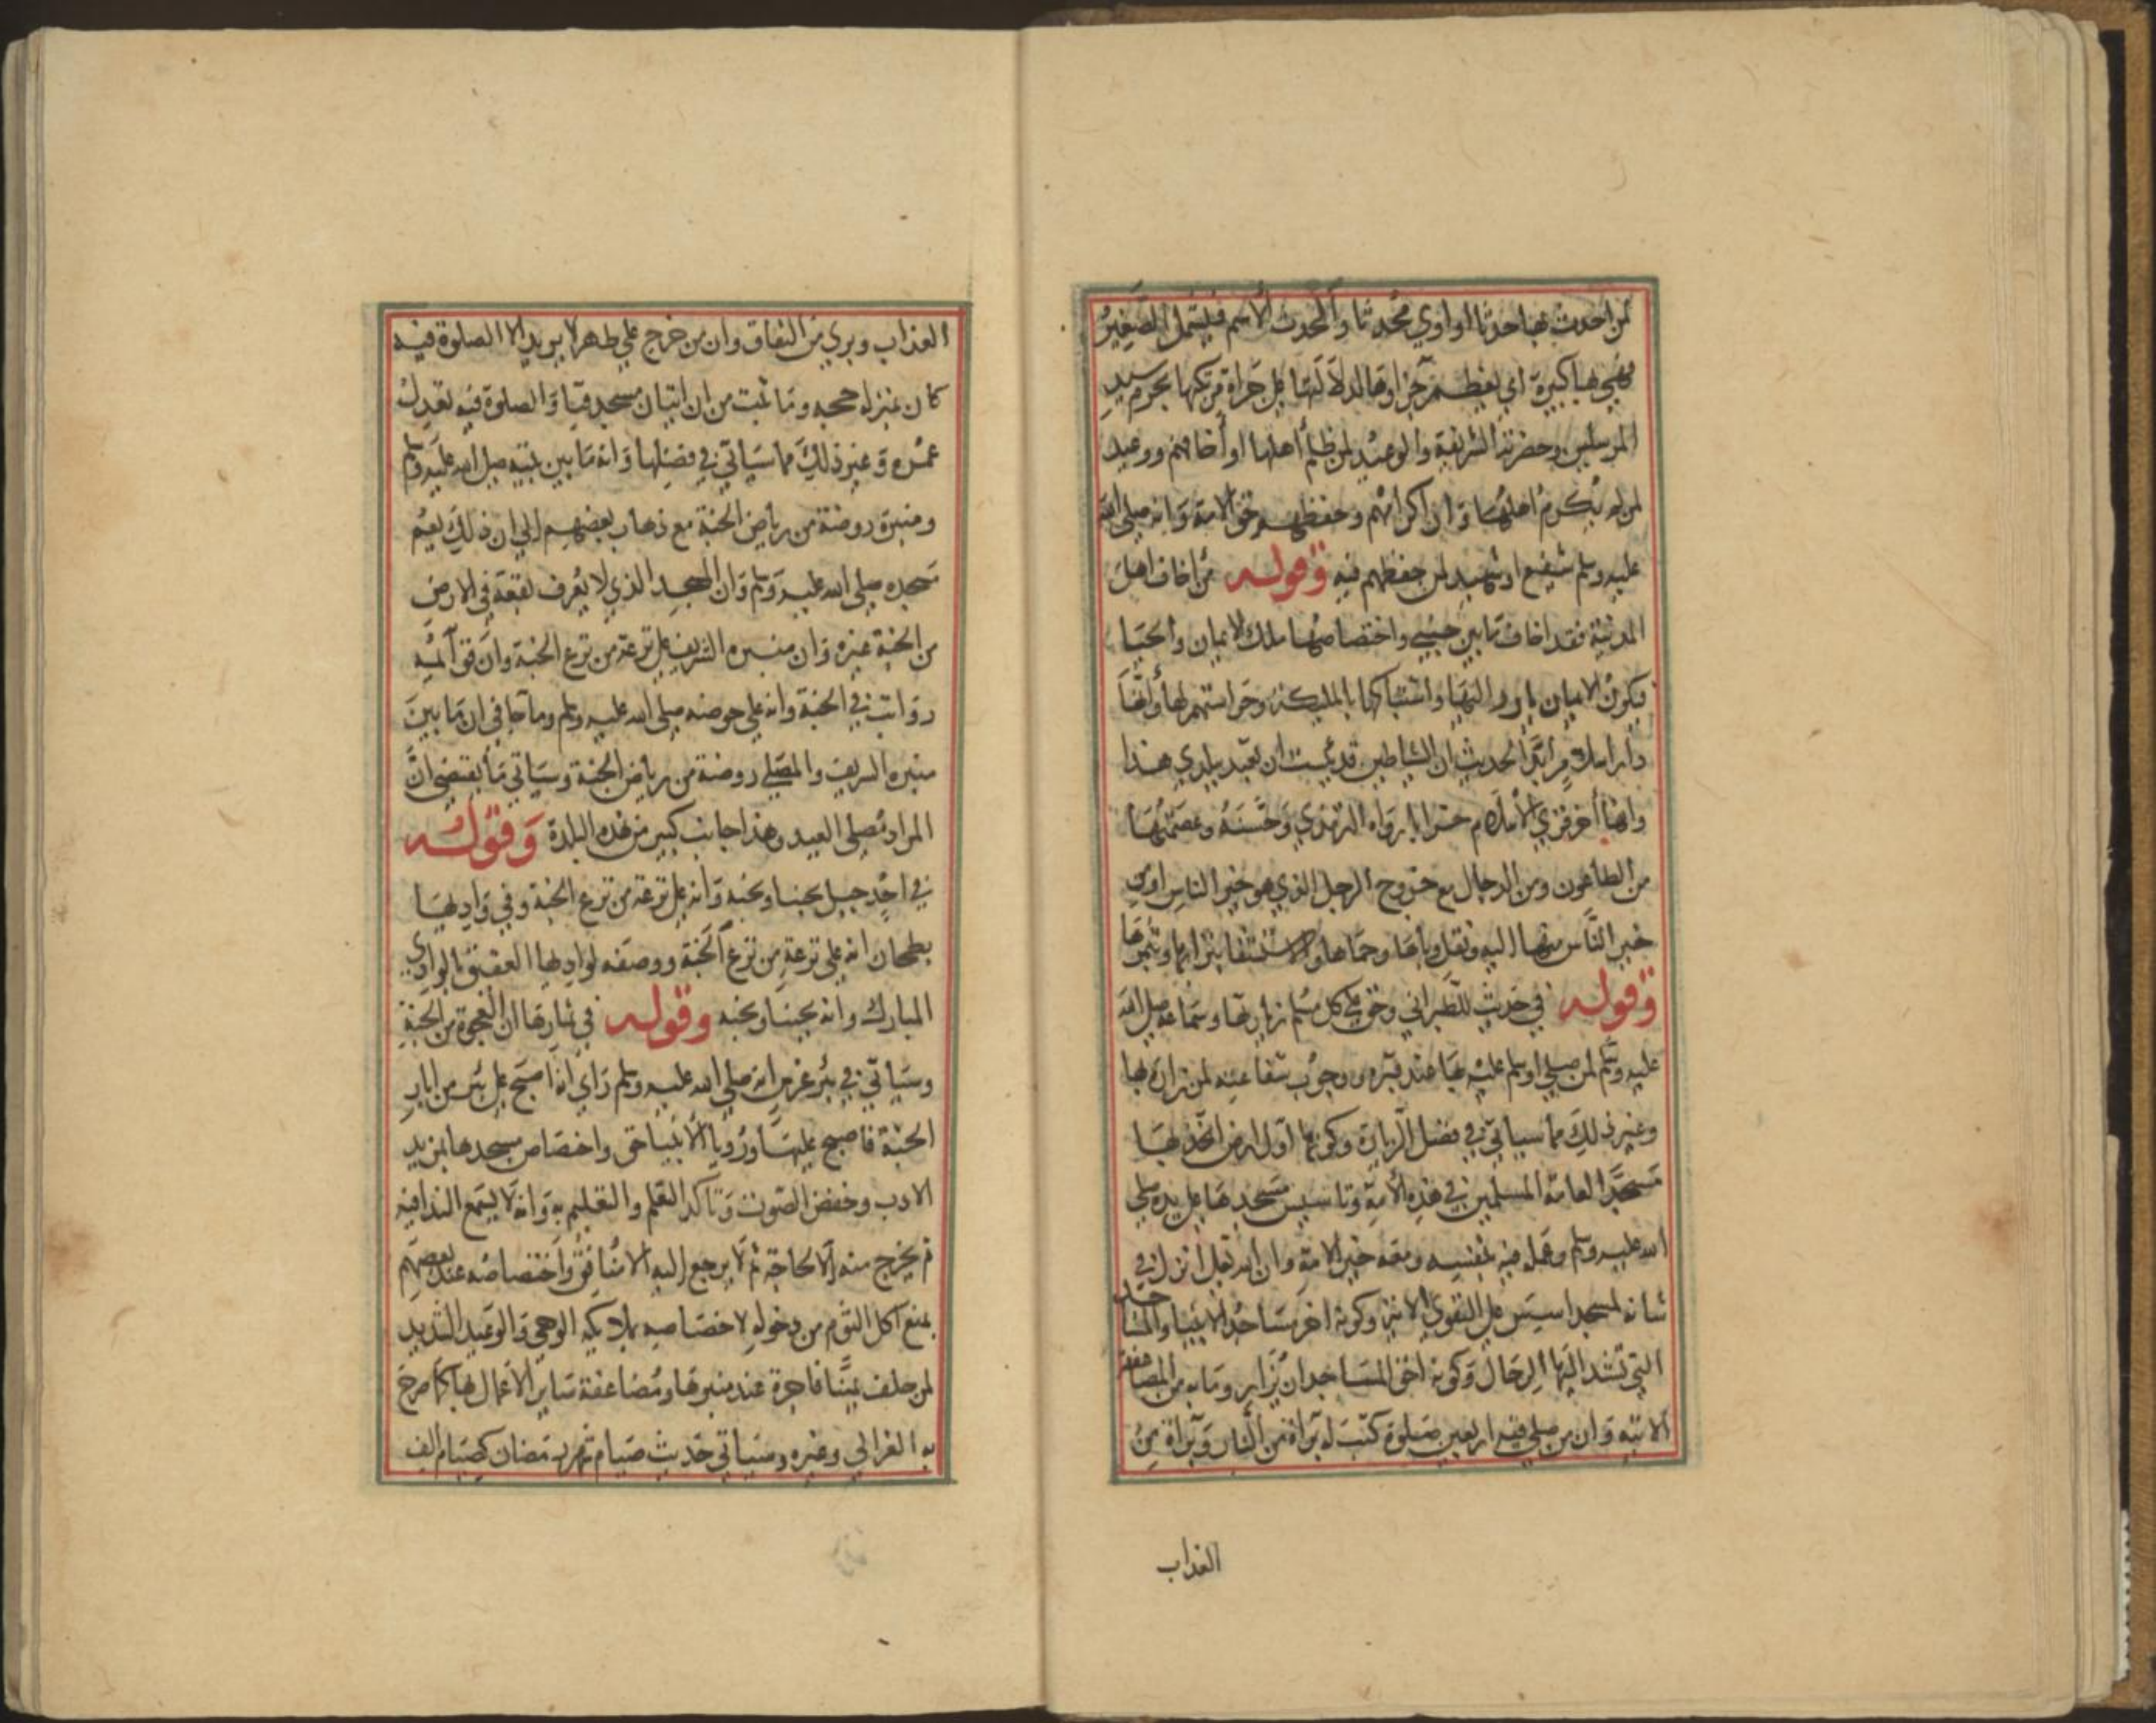 لمن احدث بها حدثا او اوي محدثا والحدث الاسم فيشمل الصغير
فهي بها كبيرة اي يعظم جزاوها لدلالتها على جراة مرتكبها بحرم سيد
المرسلين وحضرته الشريفة والوعيد لمن ظلم اهلها او أخافهم ووعيد
لمن لم يكرم اهلها وان اكرامهم وحفظهم حق الامة وانه صلى الله
عليه وسلم شفيع او شهيد لمن حفظهم فيه وقوله من اخاف اهل
المدينة فقد اخاف ما بين جنبي واختصاصها بملك الايمان والحيا
وبكون الايمان يارز اليها واشتباكها بالمليكة وحراستهم لها وانها
دار اسلام ابدا لحديث ان الشياطين قد يئست ان تعبد ببلدي هذا
وانها أخر قري الاسلام خرابا رواه الترمذي وحسنه وعصمتها
من الطاعون ومن الدجال مع خروج الرجل الذي هو خير الناس او من
خير الناس منها اليه ونقل وباها وحماها والاستشفا بترابها وبثمرها
وقوله في حديث للطبراني وحق على كل مسلم زيارتها وسماعه صلى الله
عليه وسلم لمن صلى او سلم عليه بها عند قبره ووجوب شفاعته لمن زاره بها
وغير ذلك مما سياتي في فضل الزيارة وكونها اول ارض اتخذ بها
مسجدا لعامة المسلمين في هذه الأمة وتاسيس مسجدها على يده صلى
الله عليه وسلم وعمله فيه بنفسه ومعه خير الامة وان الله تعالى انزل في
شانه لمسجد اسس على التقوى الاية وكونه اخر مساجد الانبيا والمساجد
التي تشد اليها الرحال وكونه احق المساجد ان يزار وما به من المضاعفة
الاتية وان من صلى فيه اربعين صلوة كتب له براة من النار وبراة من
العذاب
العذاب وبري من النفاق وان من خرج على طهر لا يريد الا الصلوة فيه
كان بمنزلة حجة وما ثبت من ان اتيان مسجد قبا والصلوة فيه تعدل
عمرة وغير ذلك مما سياتي في فضلها وانه ما بين بيته صلى الله عليه وسلم
ومنبره روضة من رياض الجنة مع ذهاب بعضهم الى ان ذلك يعم
مسجده صلى الله عليه وسلم وان المسجد الذي لا يعرف بقعة في الارض
من الجنة غيره وان منبره الشريف على ترعة من ترع الجنة وان قوائمه
رواتب في الجنة وانه على حوضه صلى الله عليه وسلم وما جا في ان ما بين
منبره الشريف والمصلى روضة من رياض الجنة وسياتي ما يقتضي ان
المراد مصلى العيد وهذا جانب كبير من هذه البلدة وقوله
في احد جبل يحبنا ونحبه وانه على ترعة من ترع الجنة وفي واديها
بطحان انه على ترعة من ترع الجنة ووصفه لواديها العقيق بالوادي
المبارك وانه يحبنا ونحبه وقوله في ثمارها ان العجوة من الجنة
وسياتي في بئر غرس انه صلى الله عليه وسلم راي انه اصبح على بئر من ابار
الجنة فاصبح عليها ورويا الانبيا حق واختصاص مسجدها بمزيد
الادب وخفض الصوت وتاكد التعلم والتعليم به وانه لا يسمع الندا فيه
ثم يخرج منه الا لحاجة ثم لا يرجع اليه الا منافق واختصاصه عند بعضهم
بمنع اكل الثوم من دخوله لاختصاصه بملايكة الوحي والوعيد الشديد
لمن حلف يمينا فاجرة عند منبرها ومضاعفة ساير الاعمال بها كما صرح
به الغزالي وغيره وسياتي حديث صيام شهر رمضان كصيام الف